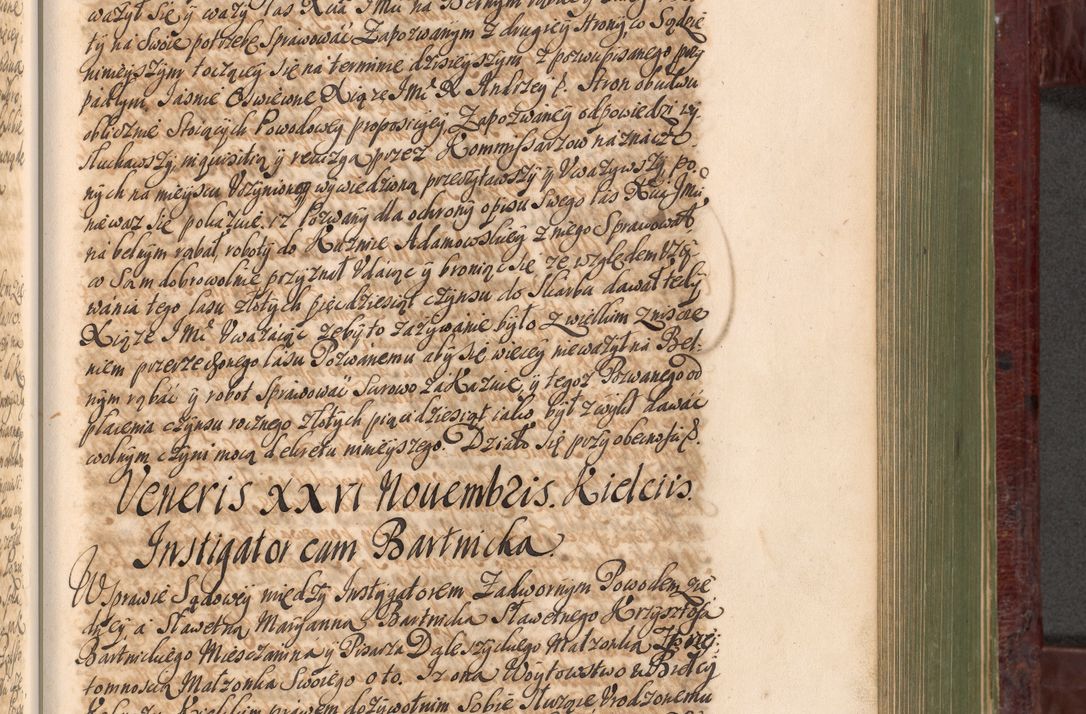 ważył się y waży las Xcia JMci na Bełnym rąbać y
ty na Swoię potrzebę Sprawować Zapozwanym z drugiey Strony, w Sądzie
ninieyszym toczącey się na terminie dzisieyszym z pozwu pisanego przy
padłym, Jaśnie Oświecone Xiąże JMć X Andrzey &. Stron obudwu
oblicznie Stoiących Powodowey proposicyey Zapozwaney odpowiedzi wy
słuchawszy, inquisitią y rewizyą przez Kommyssarzow naznaczo
nych na mieyscu Uczynioną wywiedzioną przeczytawszy y Uważywszy, po
nieważ się pokazuie, iż Pozwany dla ochrony opisu Swego las Xcia JMci
na bełnym rąbał, roboty do Kaźnice Adamowskiey z niego Sprawował
co Sam dobrowolnie przyznał Udaiąc y broniąc się, że względem Uży
wania tego lasu złotych pięćdziesiąt czynsu do Skarbu dawał tedy
Xiąże JMć Uważaiąc żeby to zażywanie było z wielkim znisze
niem przerzeczonego lasu Pozwanemu aby się więcey nie ważył na Beł
nym rąbać y robot Sprawować Surowo zakazuie, y tegoż Pozwanego od
płacenia czynsu rocznego złotych pięcidziesiąt iako był zwykł dawać
wolnym czyni mocą dekretu ninieyszego. Działo się przy obecności &.
Veneris XXVI Nouembris. Kielciis.
Instigator cum Bartnicka.
W Sprawie Sądowey między Instygatorem Zadwornym Powodem zie
dney a Sławetną Maryanną Bartnicką Sławetnego Krzysztofa
Bartnickiego Miesczanina y Pisarza Daleszyckiego Małżonką
tomnością Małżonka Swoiego oto. Iż ona Woytowstwo w
prawem dożywotnim Sobie służące Urodzonemu